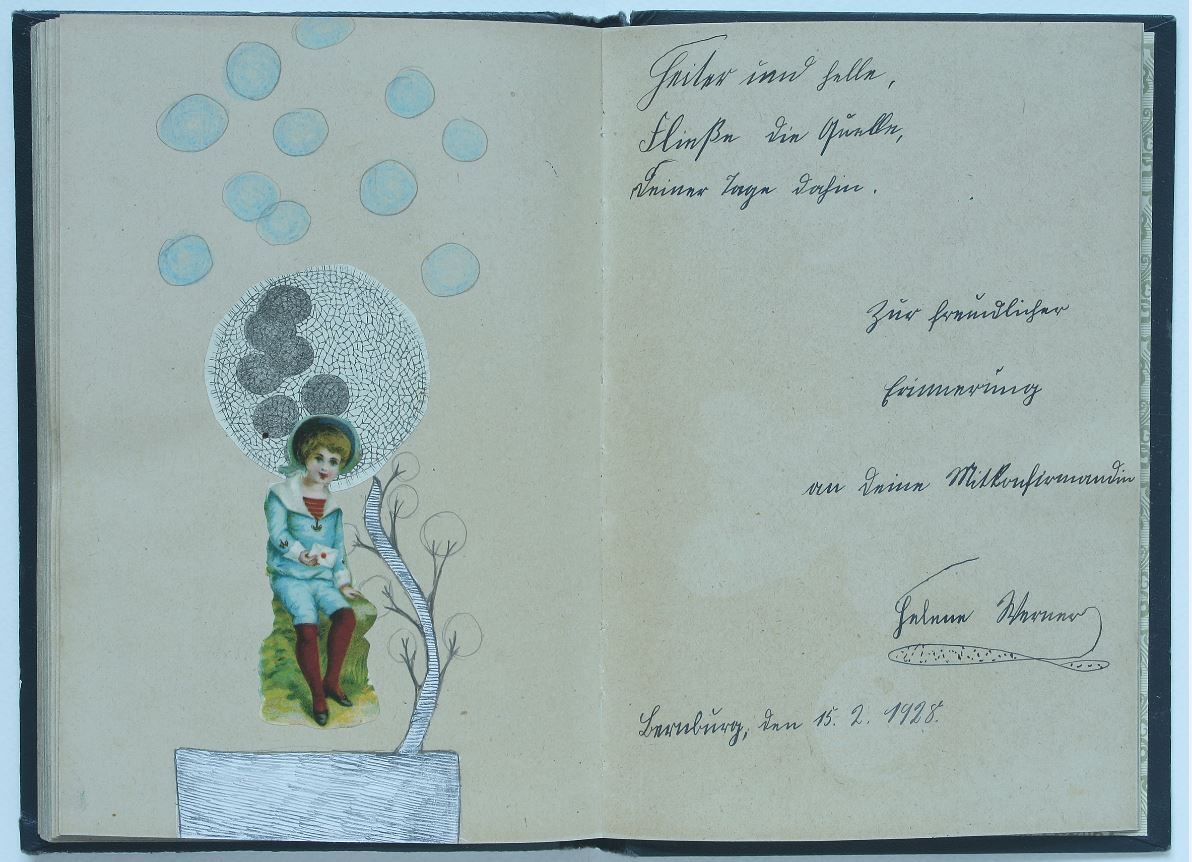 Heiter und helle,
Fließe die Quelle,
Deiner Tage dahin.
Zur freundlicher
Erinnerung
an Deine Mitkonfirmandin
Helene Werner
Bernburg, den 15. 2. 1928.